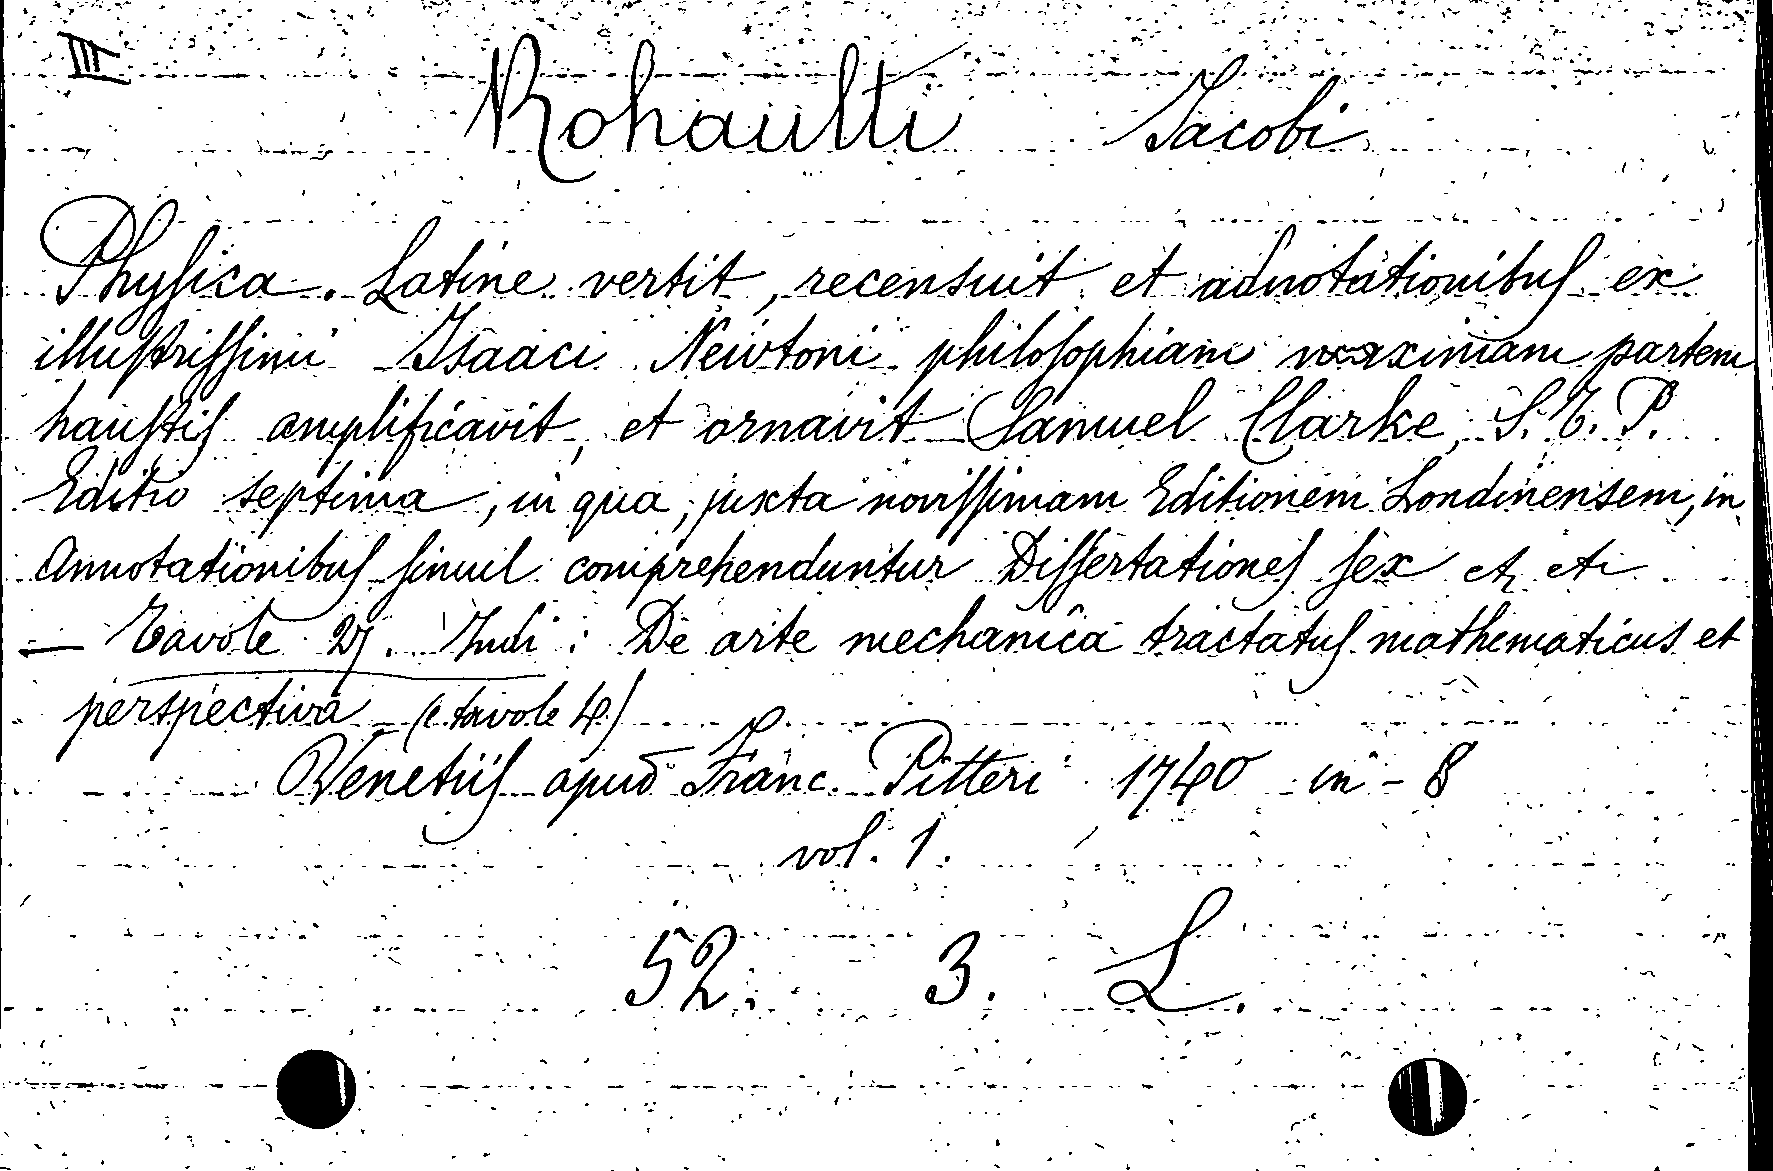 III
Rohaulti Jacobi
Physica. Latine vertit, recensuit et adnotationibus ex
illustrissimi Isaaci Newtoni philosophiam maximam partem
haustis amplificavit, et ornavit Samuel Clarke, S. T. P.
Editio septima, in qua, juxta novissimam Editionem Londinensem, in
Annotationibus simul comprehenduntur Dissertationes sex etc etc
— Tavole 27. Indi: De arte mechanica tractatus mathematicus et
perspectiva - (e tavole 4)
Venetiis apud Franc. Pitteri 1740 in-8
vol. 1.
52. 3. L.